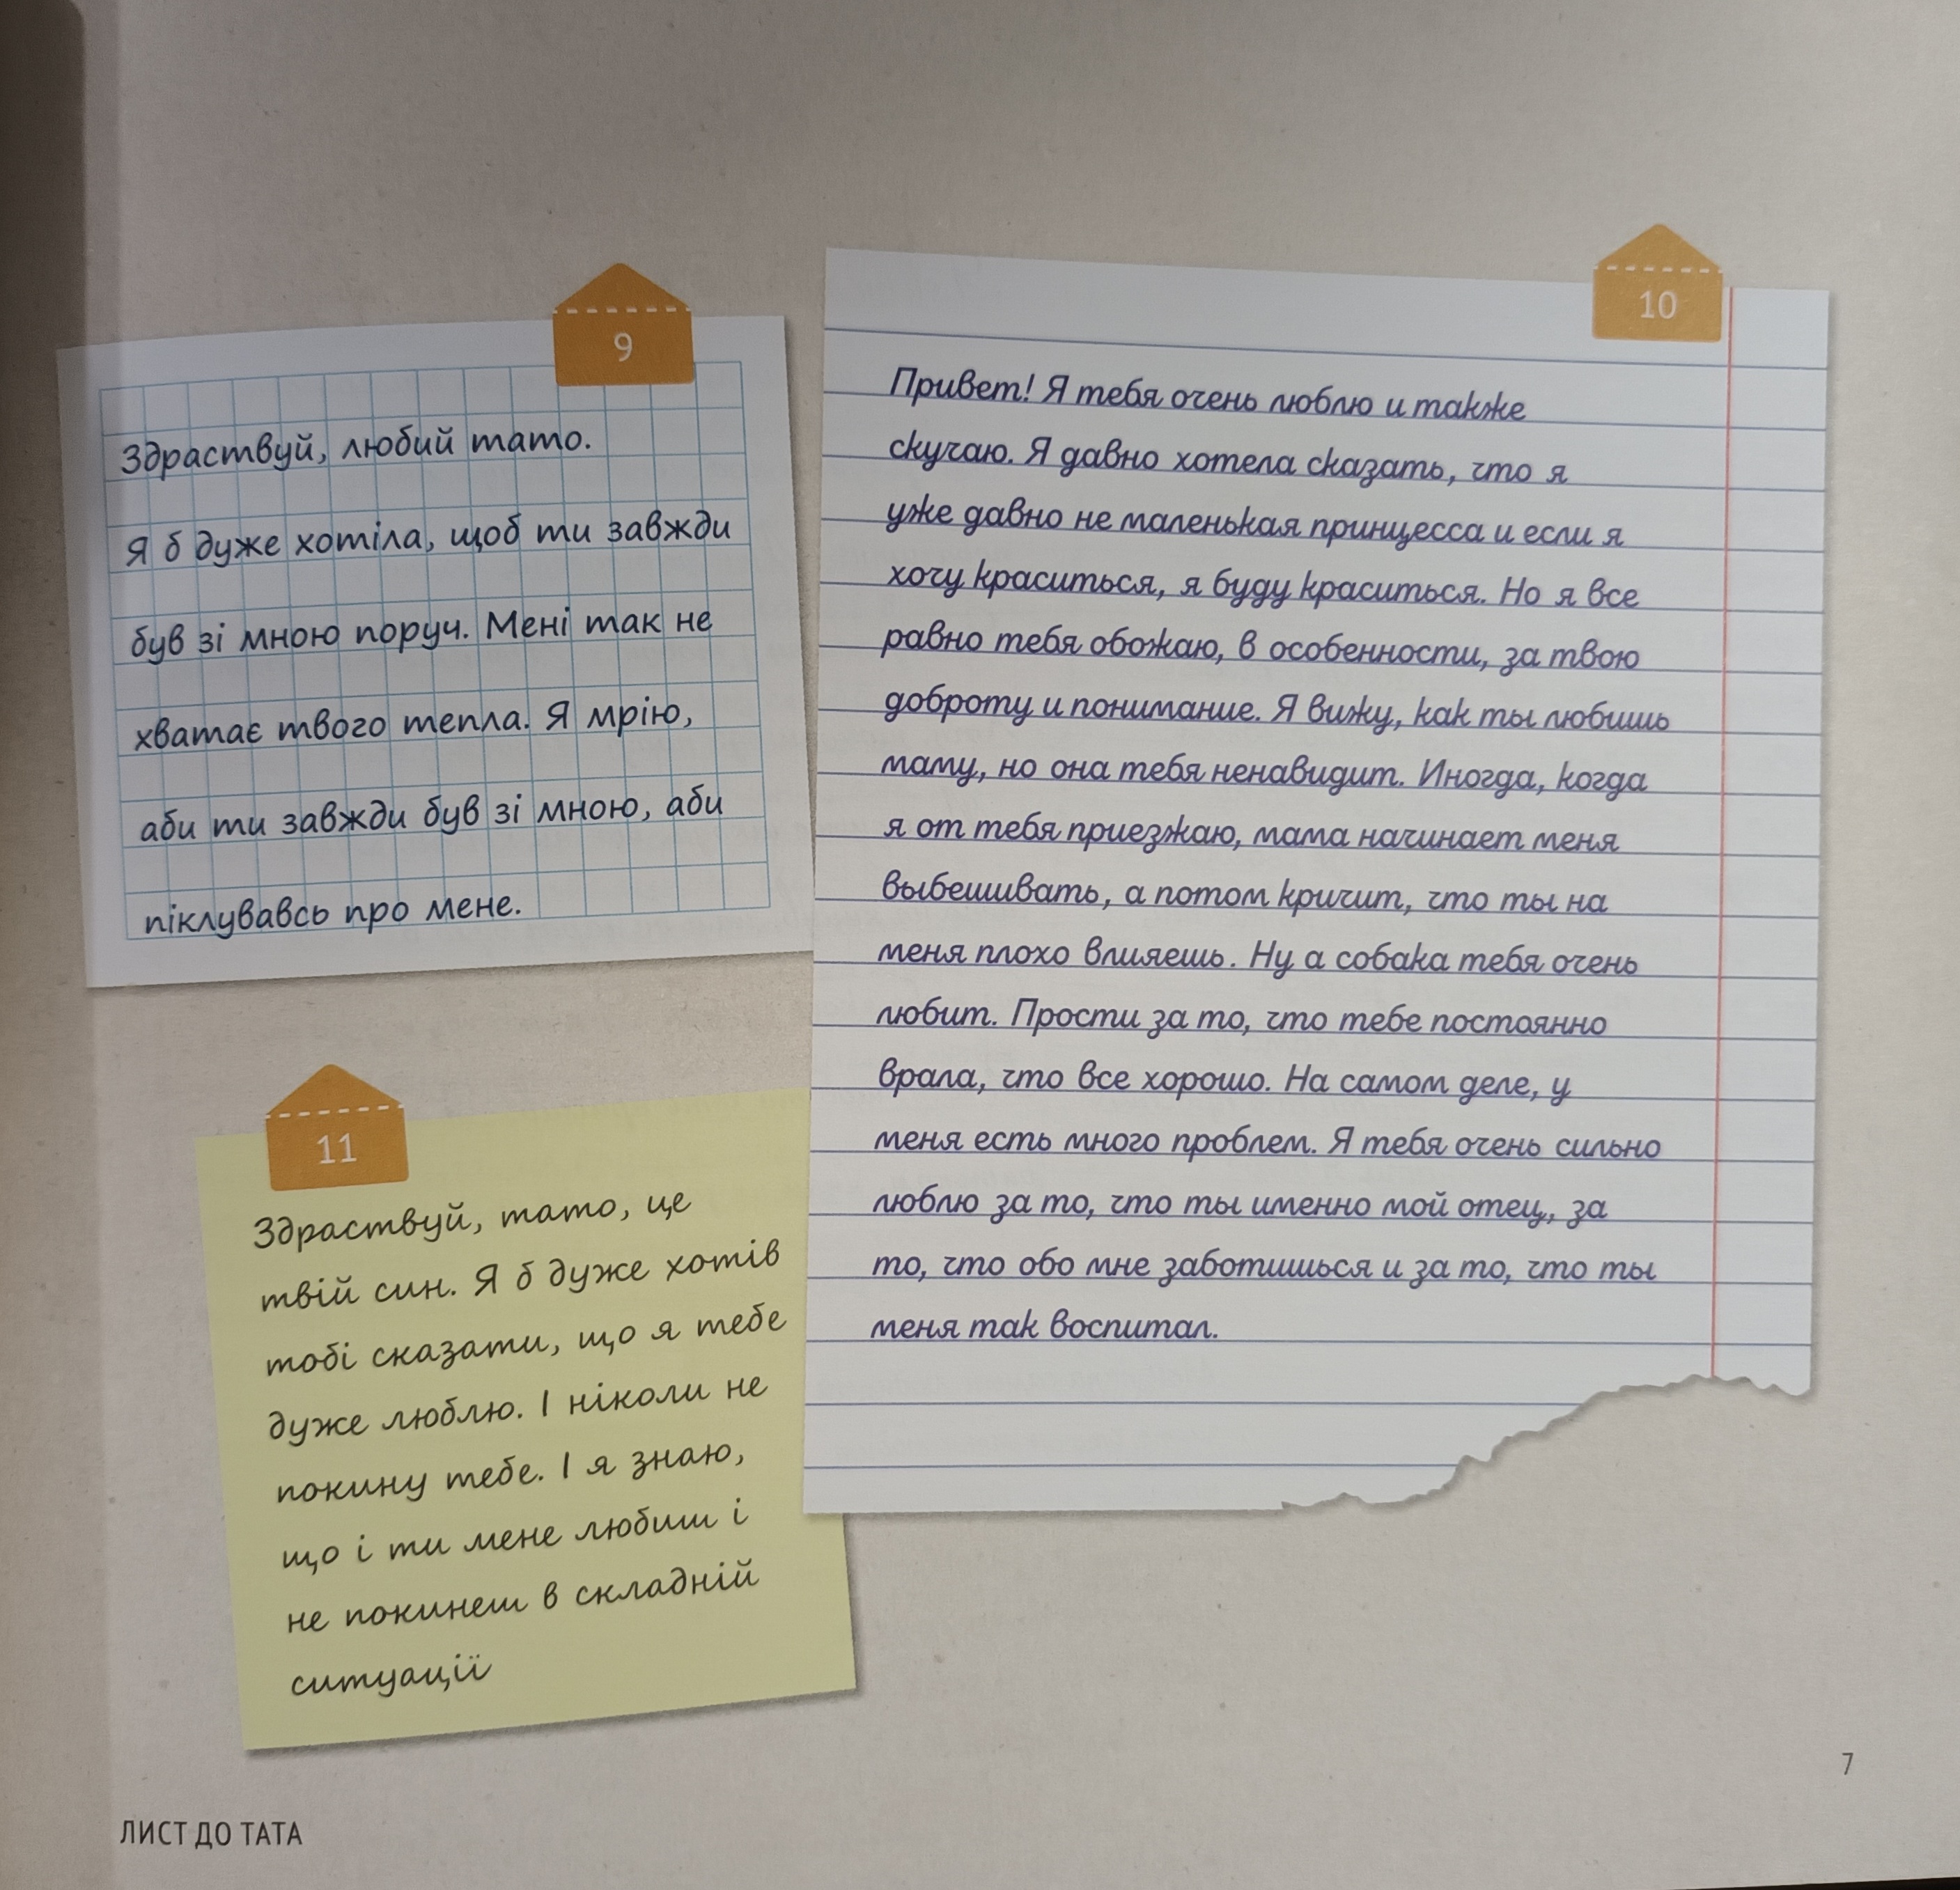 9
Здраствуй, любий тато.
Я б дуже хотіла, щоб ти завжди
був зі мною поруч. Мені так не
хватає твого тепла. Я мрію,
аби ти завжди був зі мною, аби
піклувавсь про мене.
10
Привет! Я тебя очень люблю и также
скучаю. Я давно хотела сказать, что я
уже давно не маленькая принцесса и если я
хочу краситься, я буду краситься. Но я все
равно тебя обожаю, в особенности, за твою
доброту и понимание. Я вижу, как ты любишь
маму, но она тебя ненавидит. Иногда, когда
я от тебя приезжаю, мама начинает меня
выбешивать, а потом кричит, что ты на
меня плохо влияешь. Ну а собака тебя очень
любит. Прости за то, что тебе постоянно
врала, что все хорошо. На самом деле, у
меня есть много проблем. Я тебя очень сильно
люблю за то, что ты именно мой отец, за
то, что обо мне заботишься и за то, что ты
меня так воспитал.
11
Здраствуй, тато, це
твій син. Я б дуже хотів
тобі сказати, що я тебе
дуже люблю. І ніколи не
покину тебе. І я знаю,
що і ти мене любиш і
не покинеш в складній
ситуації
7
ЛИСТ ДО ТАТА